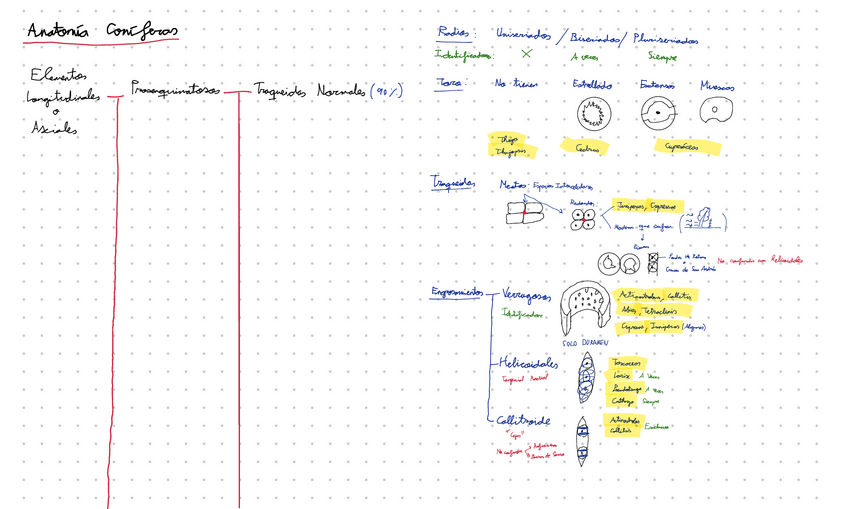 Anatomía Coníferas
Elementos
Longitudinales
o
Axiales
Prosenquimatosos
Traqueidas Normales (90%)
Radios: Uniseriados / Biseriados / Pluriseriados
Identificador: X A veces Siempre
Toro: No tienen Estrellado Extensos
Thuja
Thujopsis
Cedrus
Cupresáceas
Traqueidas Meatos: Espacios Intercelulares
Redondos
Juniperus, Cupressus
No confundir con Helicoidales
Engrosamientos
Verrugosos
Identificador
SOLO DURAMEN
Actinostrobus, Callitris
Abies, Tetraclinis
Cupressus, Juniperus (Algunos)
Helicoidales
Tangencial Radial
Taxaceas
Larix A Veces
Pseudotsuga A veces
Cathaya Siempre
Callitroide
"Cejas"
No confundir
Actinostrobus
Callitris